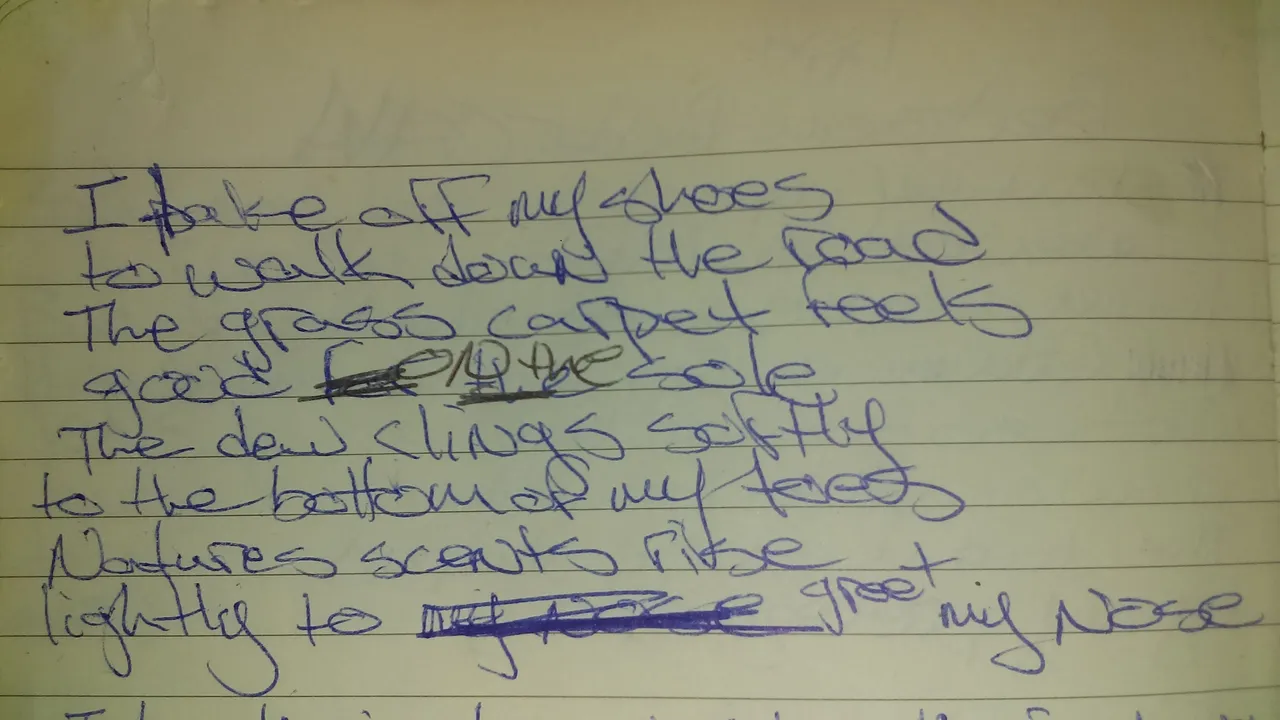 I take off my shoes
to walk down the road
The grass carpet feels
good on the sole
The dew clings softly
to the bottom of my feet
Natures scents rise
lightly to my nose greet my Nose